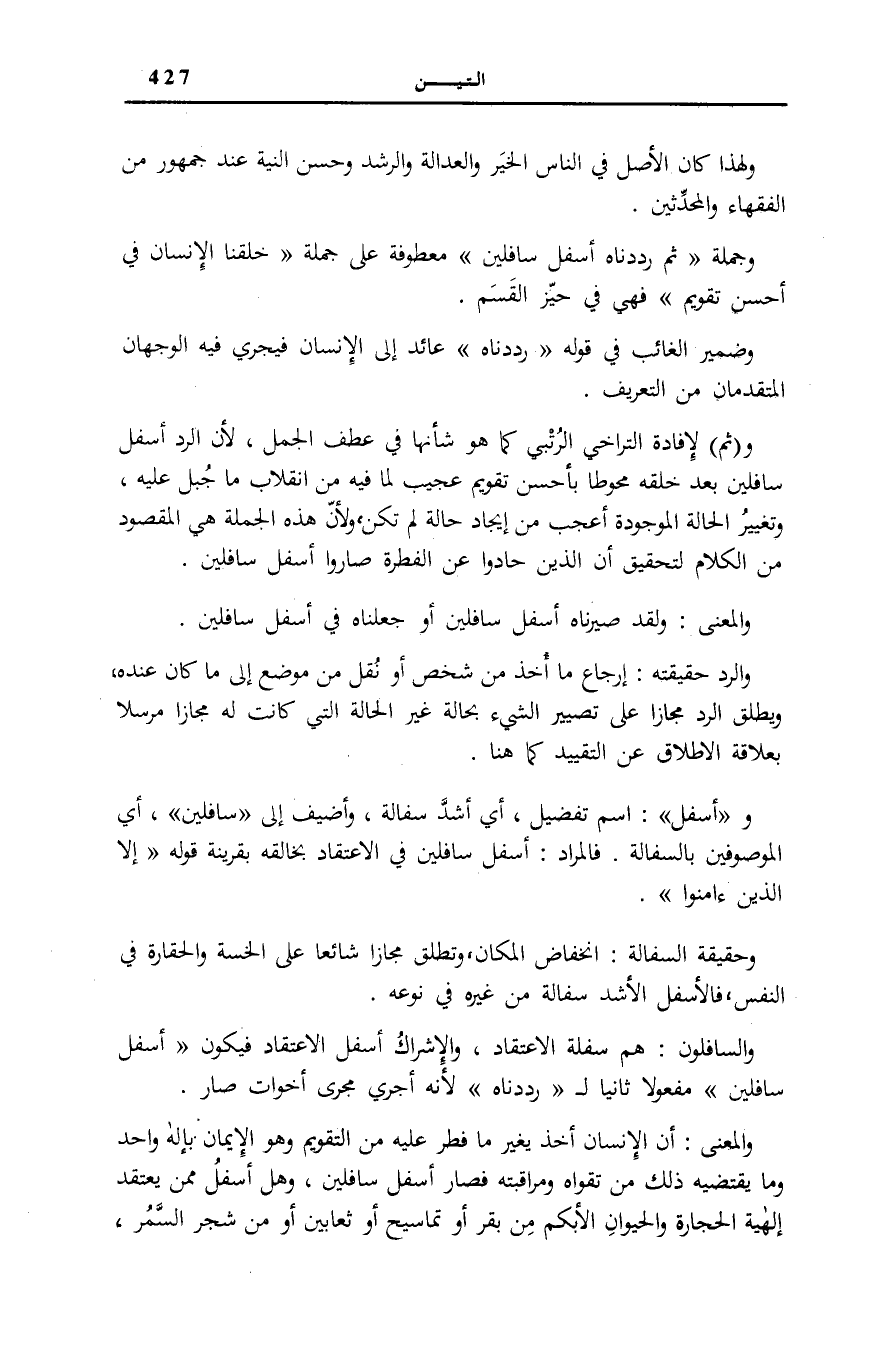 427 التيـــن
ولهذا كان الأصل في الناس الخَير والعدالة والرشد وحسن النية عند جمهور من
الفقهاء والمحدِّثين .
وجملة « ثم رددناه أسفل سافلين » معطوفة على جملة « خلقنا الإنسان في
أحسنِ تقويم » فهي في حيّز القَسَم .
وضمير الغائب في قوله « رددناه » عائد إلى الإنسان فيجري فيه الوجهان
المتقدمان من التعريف .
و(ثم) لإفادة التراخي الرُتْبي كما هو شأنها في عطف الجمل ، لأن الرد أسفل
سافلين بعد خلقه محوطا بأحسن تقويم عجيب لما فيه من انقلاب ما جُبل عليه ،
وتغييرُ الحالة الموجودة أعجب من إيجاد حالة لم تكن،ولأنّ هذه الجملة هي المقصود
من الكلام لتحقيق أن الذين حادوا عن الفطرة صاروا أسفل سافلين .
والمعنى : ولقد صيرناه أسفل سافلين أو جعلناه في أسفل سافلين .
والرد حقيقته : إرجاع ما أُخذ من شخص أو نُقل من موضع إلى ما كان عنده،
ويطلق الرد مجازا على تصيير الشيء بحالة غير الحالة التي كانت له مجازا مرسلا
بعلاقة الاطلاق عن التقييد كما هنا .
و «أسفل» : اسم تفضيل ، أي أشدَّ سفالة ، وأضيف إلى «سافلين» ، أي
الموصوفين بالسفالة . فالمراد : أسفل سافلين في الاعتقاد بخالقه بقرينة قوله « إلا
الذين ءامنوا » .
وحقيقة السفالة : انخفاض المكان،وتطلق مجازا شائعا على الخسة والحقارة في
النفس،فالأسفل الأشد سفالة من غيره في نوعه .
والسافلون : هم سفلة الاعتقاد ، والإشراكُ أسفل الاعتقاد فيكون « أسفل
سافلين » مفعولا ثانيا لـ « رددناه » لأنه أجري مجرى أخوات صار .
والمعنى : أن الإنسان أخذ يغير ما فطر عليه من التقويم وهو الإيمان بإلٰه واحد
وما يقتضيه ذلك من تقواه ومراقبته فصار أسفل سافلين ، وهل أسفلُ ممن يعتقد
إلٰهية الحجارة والحيوانِ الأبكم مِن بقر أو تماسيح أو ثعابين أو من شجر السَّمُر ،